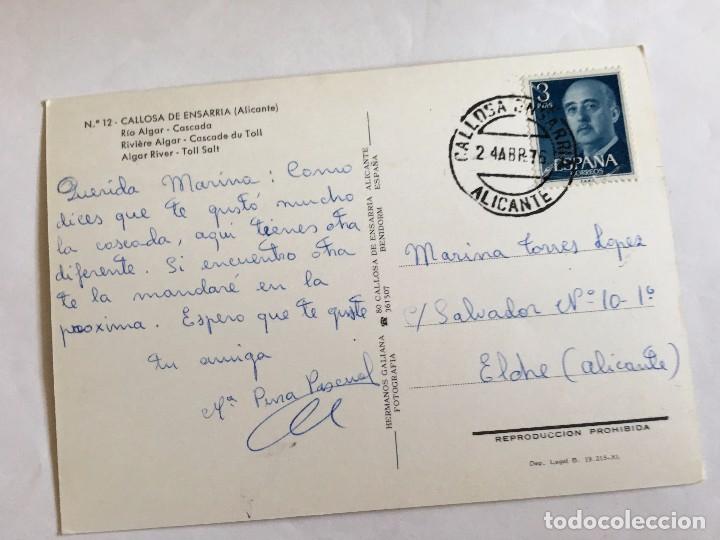 N.º 12 - CALLOSA DE ENSARRIA (Alicante)
Río Algar - Cascada
Rivière Algar - Cascade du Toll
Algar River - Toll Salt
Querida Marina: Como
dices que te gustó mucho
la coscada, aqui tienes otra
diferente. Si encuentro otra
te la mandaré en la
proxima. Espero que te guste
tu amiga
Mª Pura Pascual
HERMANOS GALIANA ☎ 80 CALLOSA DE ENSARRIA ALICANTE
FOTOGRAFIA 361507 BENIDORM ESPAÑA
3
PTAS
ESPAÑA
CORREOS
CALLOSA ENSARRIA
24 ABR. 76
ALICANTE
Marina Torres Lopez
c/ Salvador Nº 10-1º
Elche (alicante)
REPRODUCCION PROHIBIDA
Dep. Legal B. 19.215-XI.
todocoleccion.net